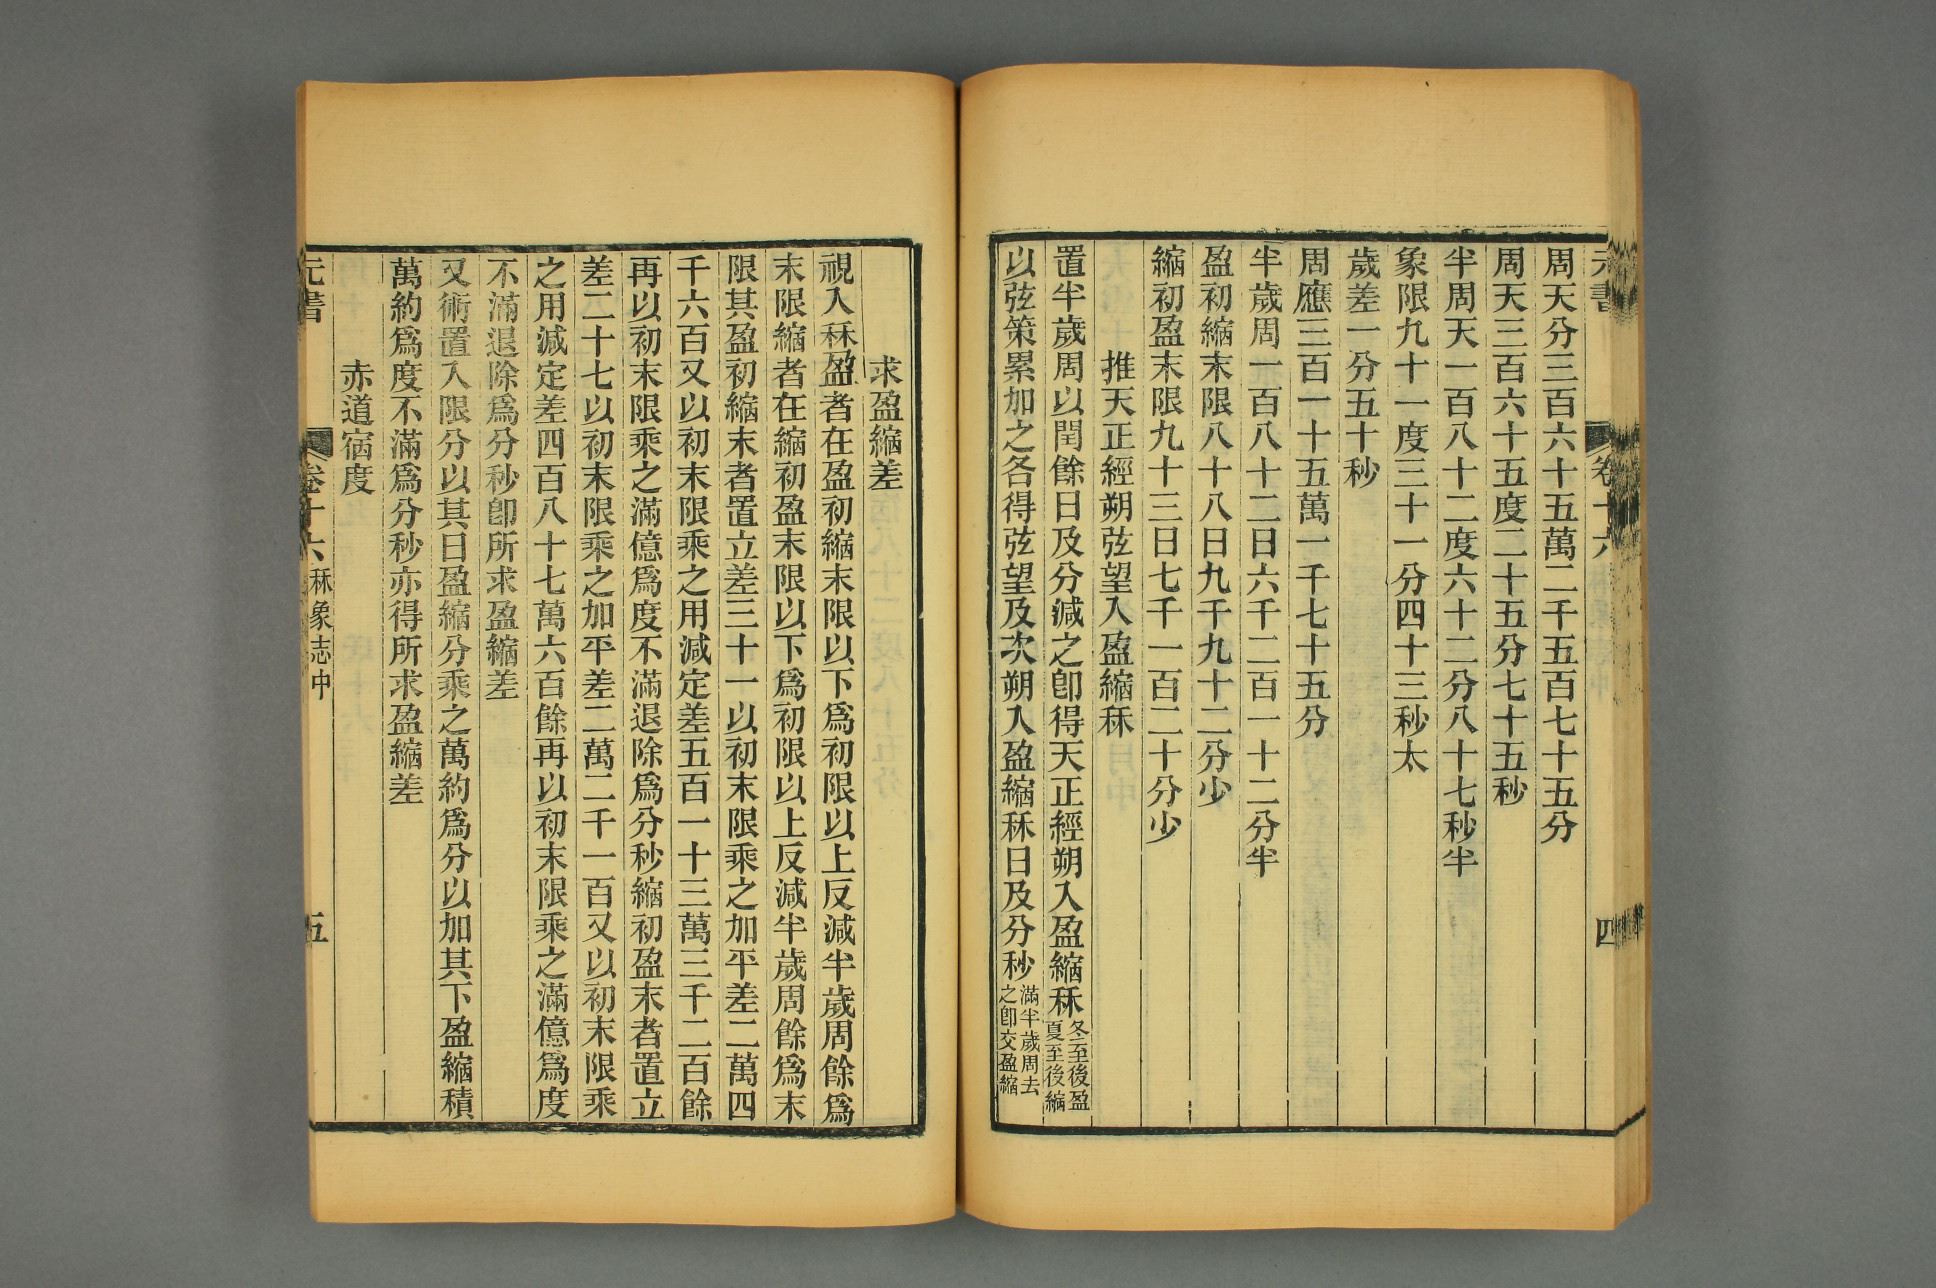 元書 卷十六 四
周天分三百六十五萬二千五百七十五分
周天三百六十五度二十五分七十五秒
半周天一百八十二度六十二分八十七秒半
象限九十一度三十一分四十三秒太
歲差一分五十秒
周應三百一十五萬一千七十五分
半歲周一百八十二日六千二百一十二分半
盈初縮末限八十八日九千九十二分少
縮初盈末限九十三日七千一百二十分少
推天正經朔弦望入盈縮秝
置半歲周以閏餘日及分減之卽得天正經朔入盈縮秝冬至後盈夏至後縮
以弦策累加之各得弦望及次朔入盈縮秝日及分秒滿半歲周去之卽交盈縮
求盈縮差
視入秝盈者在盈初縮末限以下爲初限以上反減半歲周餘爲
末限縮者在縮初盈末限以下爲初限以上反減半歲周餘爲末
限其盈初縮末者置立差三十一以初末限乘之加平差二萬四
千六百又以初末限乘之用減定差五百一十三萬三千二百餘
再以初末限乘之滿億爲度不滿退除爲分秒縮初盈末者置立
差二十七以初末限乘之加平差二萬二千一百又以初末限乘
之用減定差四百八十七萬六百餘再以初末限乘之滿億爲度
不滿退除爲分秒卽所求盈縮差
又術置入限分以其日盈縮分乘之萬約爲分以加其下盈縮積
萬約爲度不滿爲分秒亦得所求盈縮差
赤道宿度
元書 卷十六 秝象志中 五